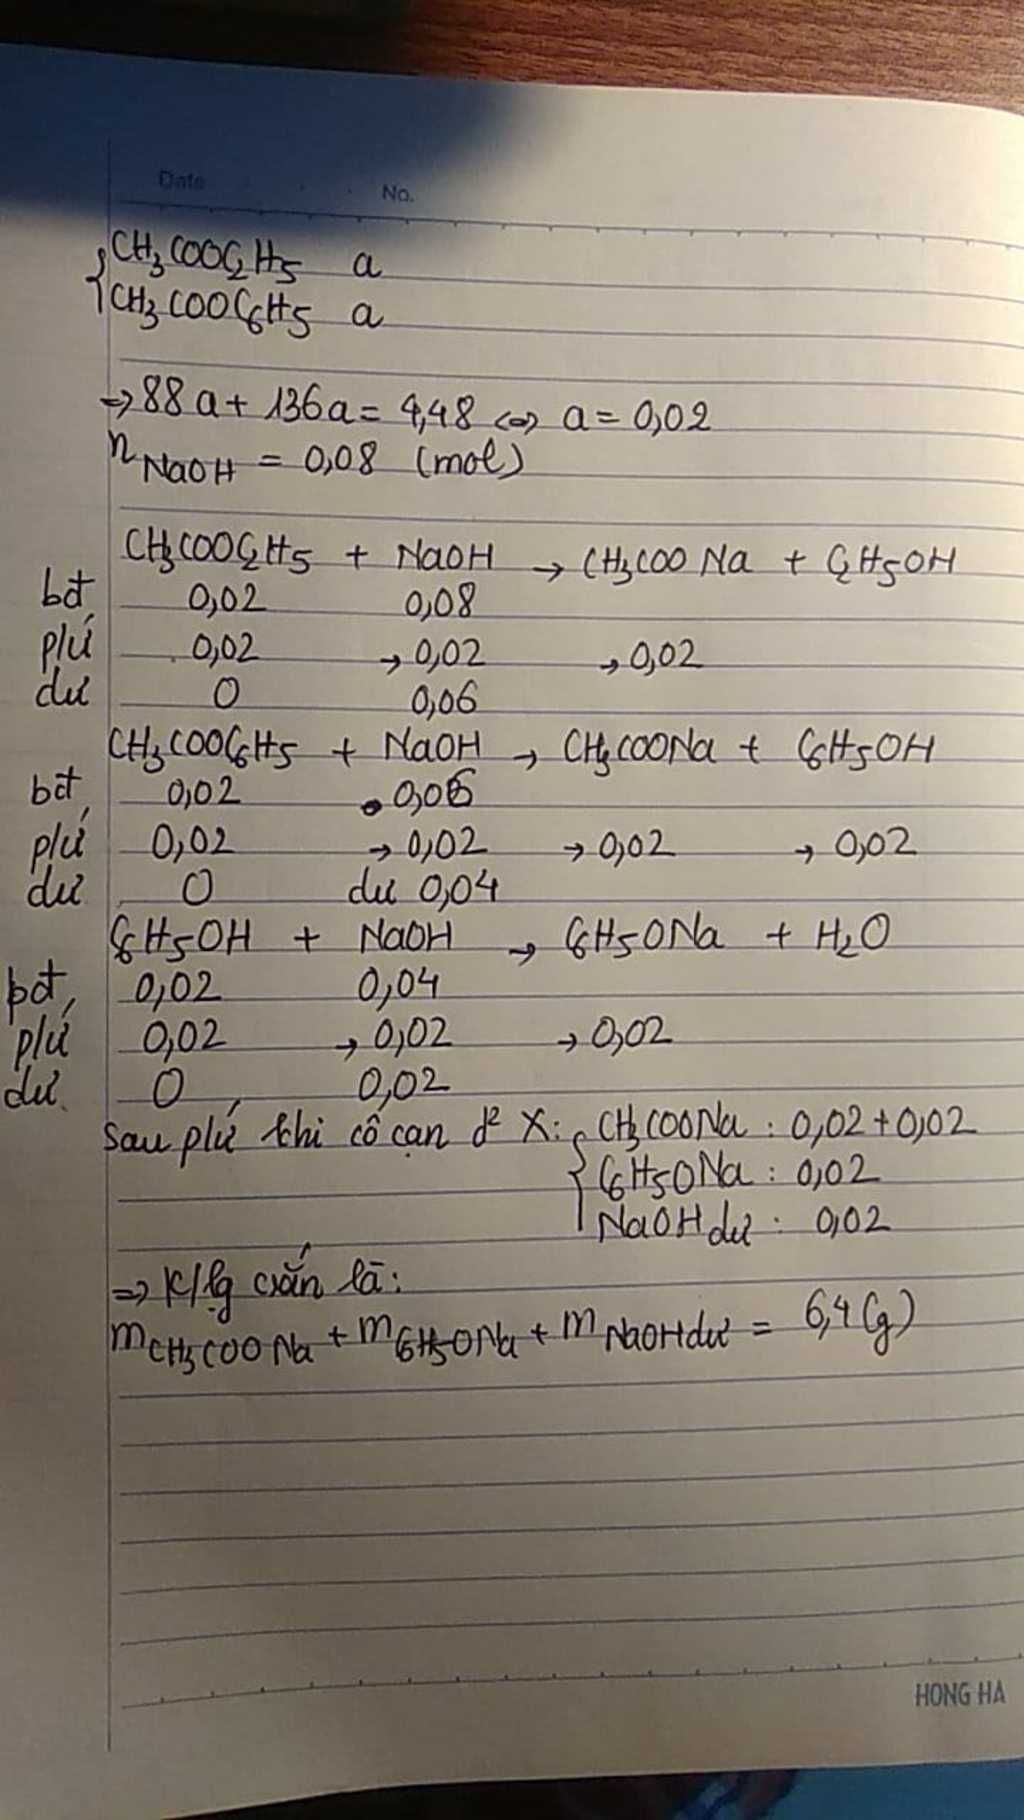 Date No.
CH3COOC2H5 a
CH3COOC6H5 a
=> 88a + 136a = 4,48 <=> a = 0,02
nNaOH = 0,08 (mol)
CH3COOC2H5 + NaOH → CH3COONa + C2H5OH
bđ 0,02 0,08
p/ứ 0,02 → 0,02 → 0,02
dư 0 0,06
CH3COOC6H5 + NaOH → CH3COONa + C6H5OH
bđ 0,02 0,06
p/ứ 0,02 → 0,02 → 0,02 → 0,02
dư 0 dư 0,04
C6H5OH + NaOH → C6H5ONa + H2O
bđ 0,02 0,04
p/ứ 0,02 → 0,02 → 0,02
dư 0 0,02
Sau p/ứ khi cô cạn d² X: CH3COONa : 0,02+0,02
C6H5ONa : 0,02
NaOH dư : 0,02
=> K/lg crắn là:
mCH3COONa + mC6H5ONa + mNaOH dư = 6,4 (g)
HONG HA